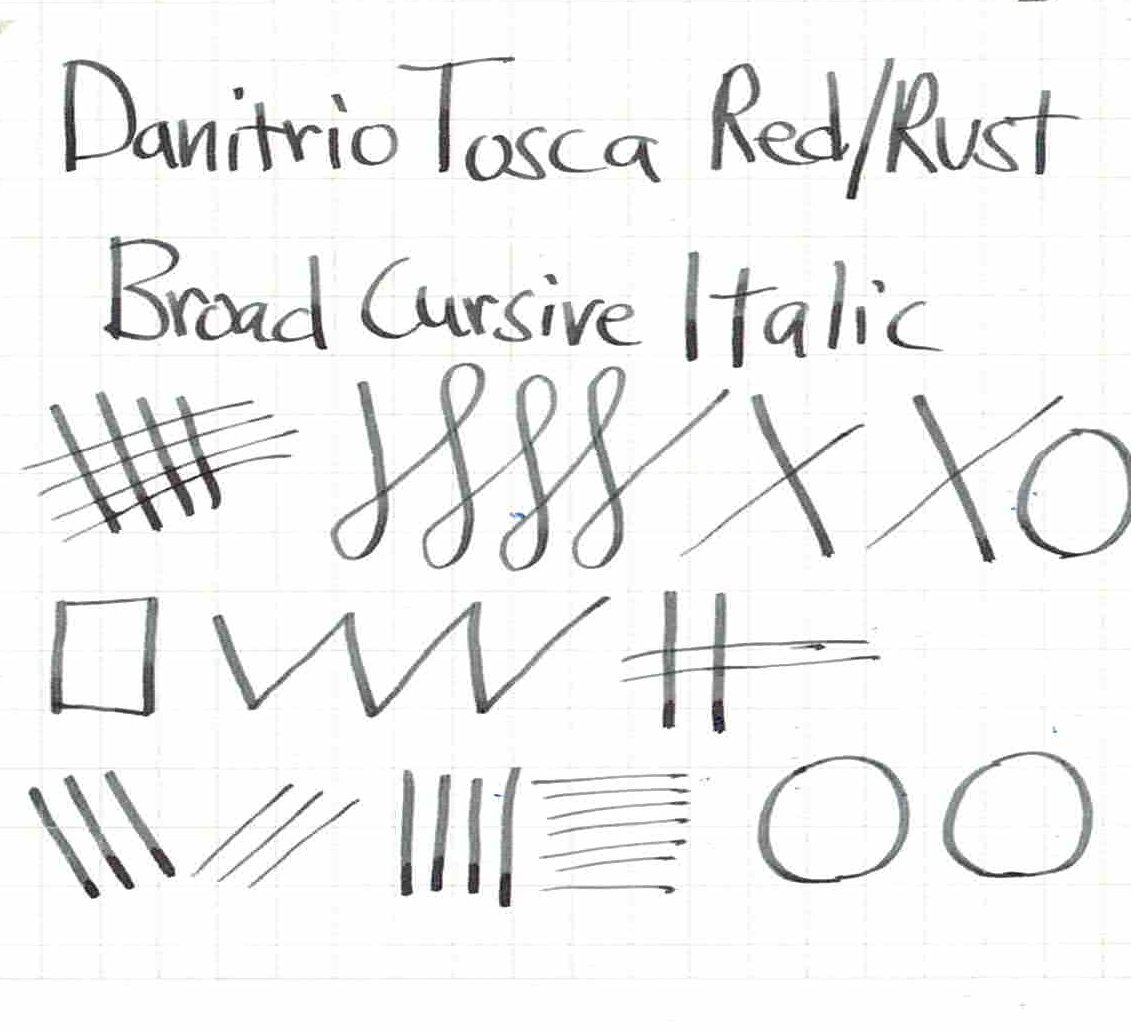 Danitrio Tosca Red/Rust
Broad Cursive Italic